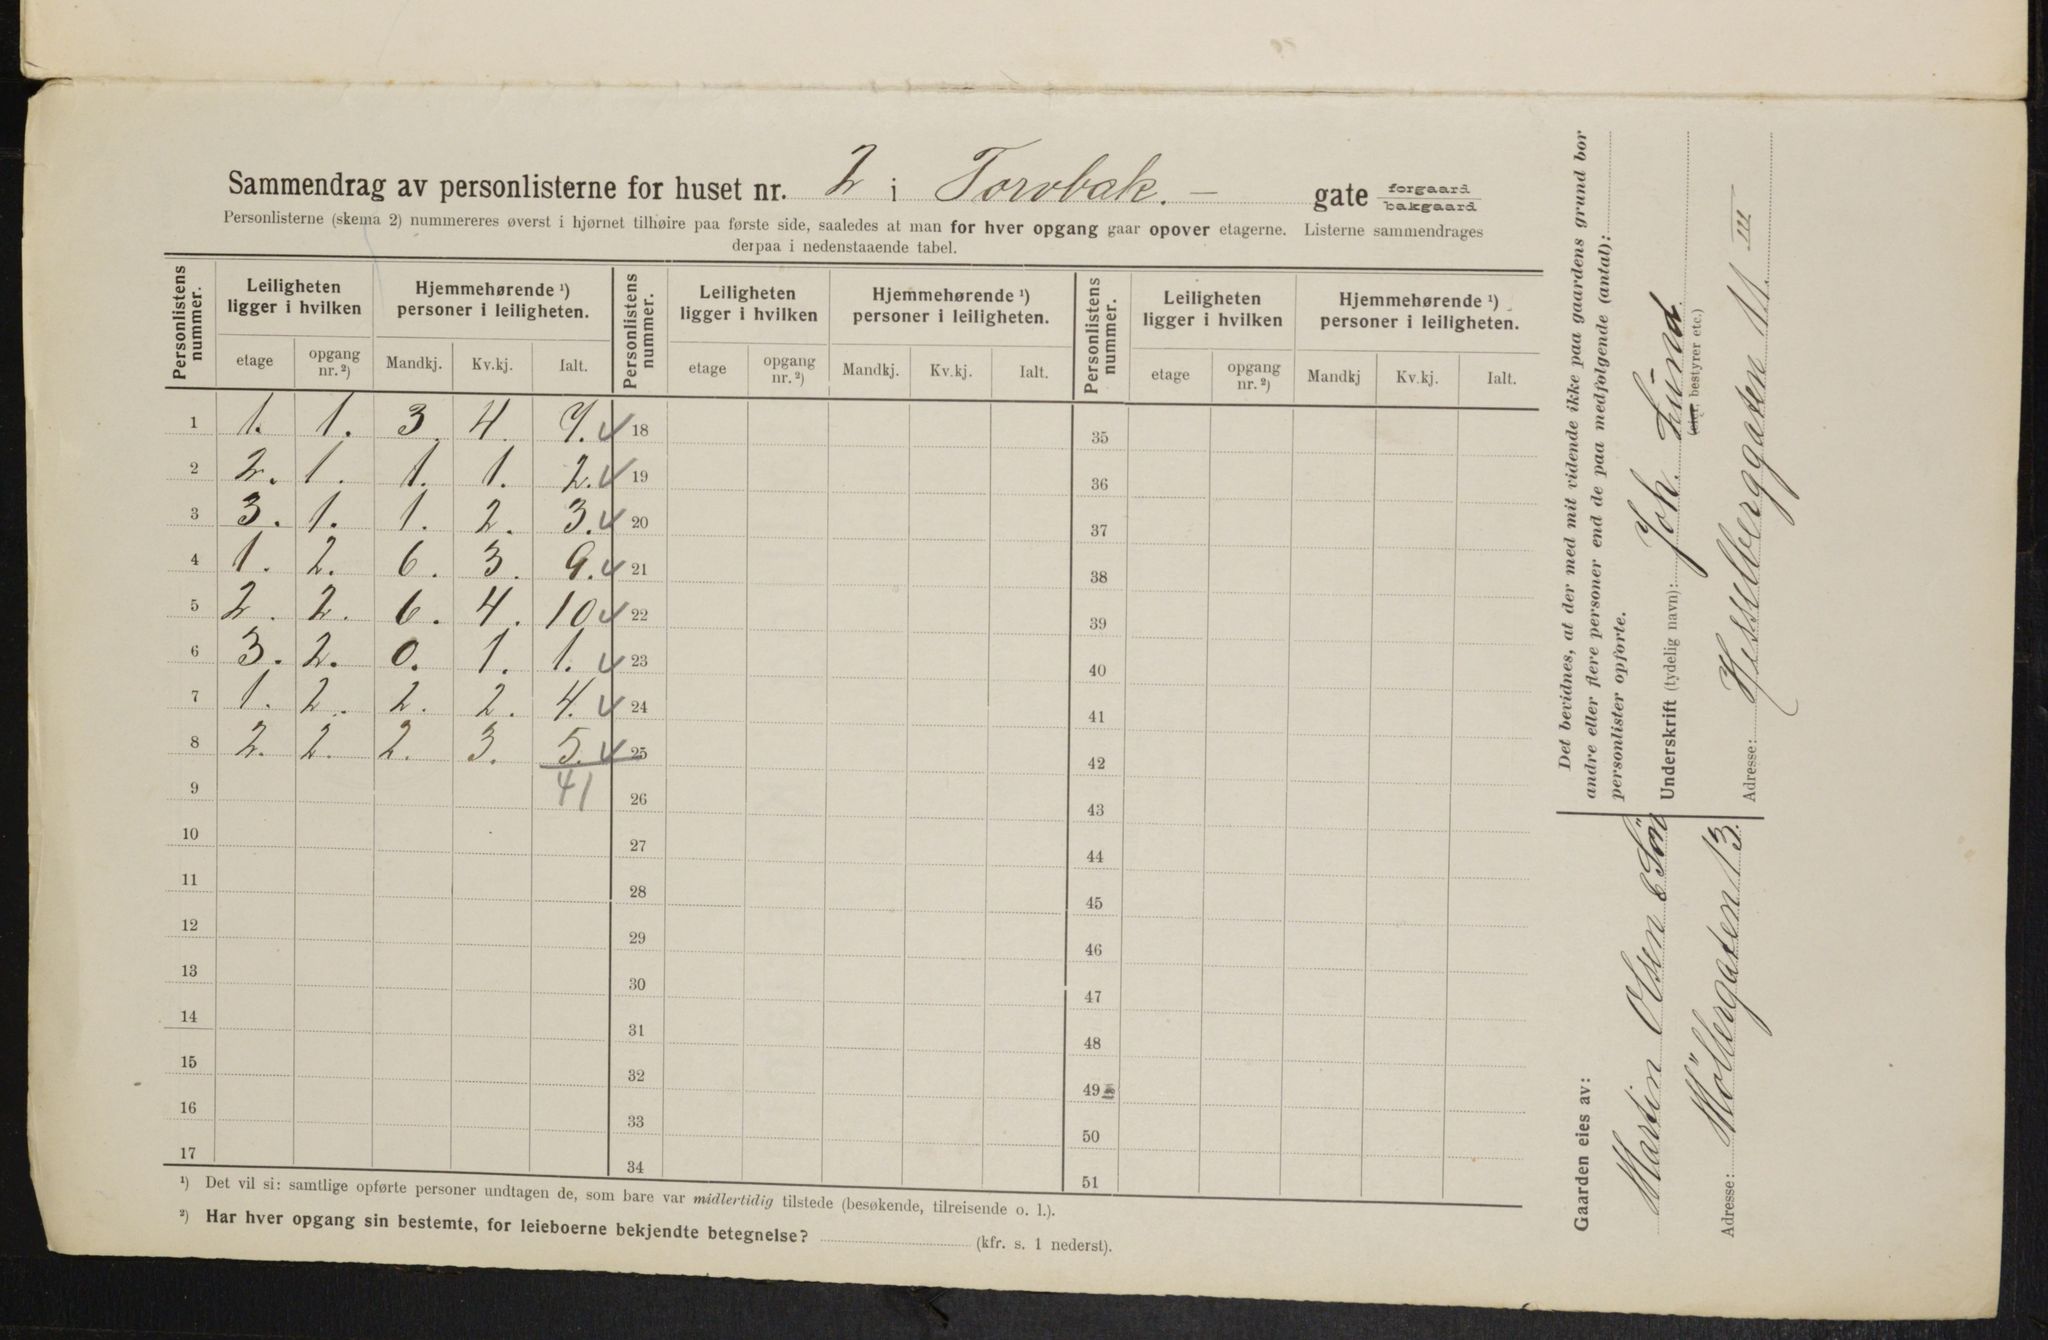 Sammendrag av personlisterne for huset nr. 2 i Torvbak. – gate forgaard bakgaard
Personlisterne (skema 2) nummereres øverst i hjørnet tilhøire paa første side, saaledes at man for hver opgang gaar opover etagerne. Listerne sammendrages
derpaa i nedenstaaende tabel.
Personlistens nummer. Leiligheten ligger i hvilken Hjemmehørende ¹) personer i leiligheten. Personlistens nummer. Leiligheten ligger i hvilken Hjemmehørende ¹) personer i leiligheten. Personlistens nummer. Leiligheten ligger i hvilken Hjemmehørende ¹) personer i leiligheten.
etage opgang nr. ²) Mandkj. Kv.kj. Ialt. etage opgang nr. ²) Mandkj. Kv.kj. Ialt. etage opgang nr. ²) Mandkj Kv.kj. Ialt.
1 1. 1. 3. 4. 7. 18 35
2 2. 1. 1. 1. 2. 19 36
3 3. 1. 1. 2. 3. 20 37
4 1. 2. 6. 3. 9. 21 38
5 2. 2. 6. 4. 10 22 39
6 3. 2. 0. 1. 1. 23 40
7 1. 2. 2. 2. 4. 24 41
8 2. 2. 2. 3. 5. 25 42
9 41 26 43
10 27 44
11 28 45
12 29 46
13 30 47
14 31 48
15 32 49
16 33 50
17 34 51
¹) Det vil si: samtlige opførte personer undtagen de, som bare var midlertidig tilstede (besøkende, tilreisende o. l.).
²) Har hver opgang sin bestemte, for leieboerne bekjendte betegnelse? (kfr. s. 1 nederst).
Det bevidnes, at der med mit vidende ikke paa gaardens grund bor
andre eller flere personer end de paa medfølgende (antal):
personlister opførte.
Underskrift (tydelig navn): Joh. Lund.
(eier, bestyrer etc.)
Adresse: Hesselberggaten 11. III
Gaarden eies av:
Martin Olsen & Sön
Adresse: Möllergaten 13.